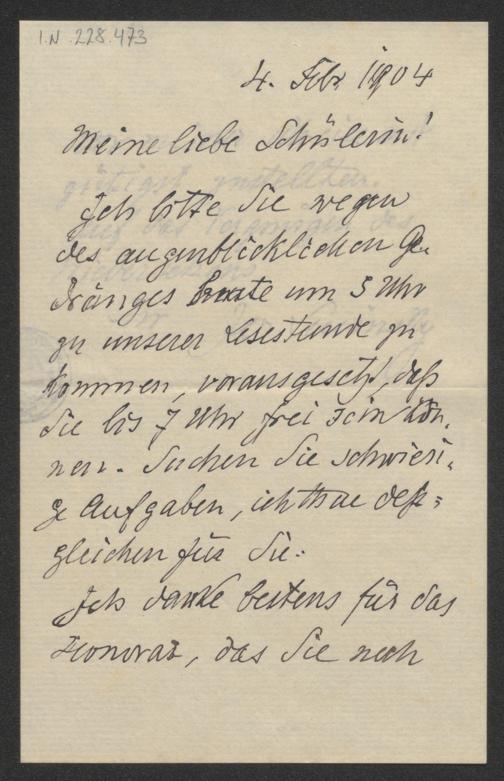 I.N. 228.473
4. Febr 1904
Meine liebe Schülerin!
Ich bitte Sie wegen
des augenblicklichen Ge-
dränges heute um 5 Uhr
zu unserer Lesestunde zu
kommen, vorausgesetzt, daß
Sie bis 7 Uhr frei sein kön-
nen. Suchen Sie schwieri-
ge Aufgaben, ich thue deß-
gleichen für Sie.
Ich danke bestens für das
Honorar, das Sie noch